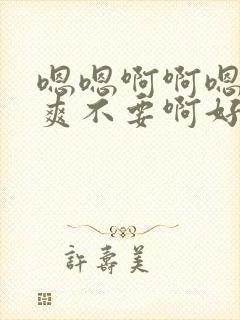 嗯嗯啊啊嗯
爽不要啊好
許壽美